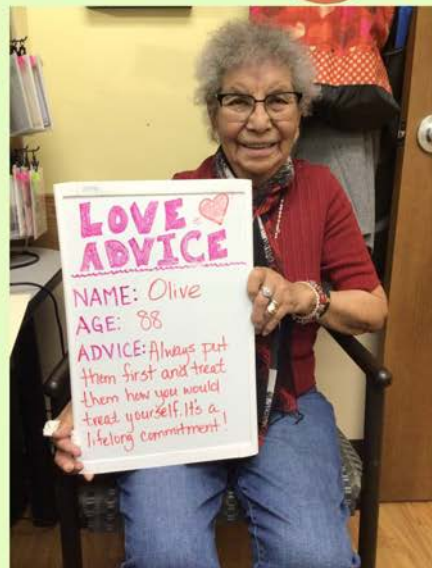 LOVE
ADVICE
NAME: Olive
AGE: 88
ADVICE: Always put
them first and treat
them how you would
treat yourself. It's a
lifelong commitment!